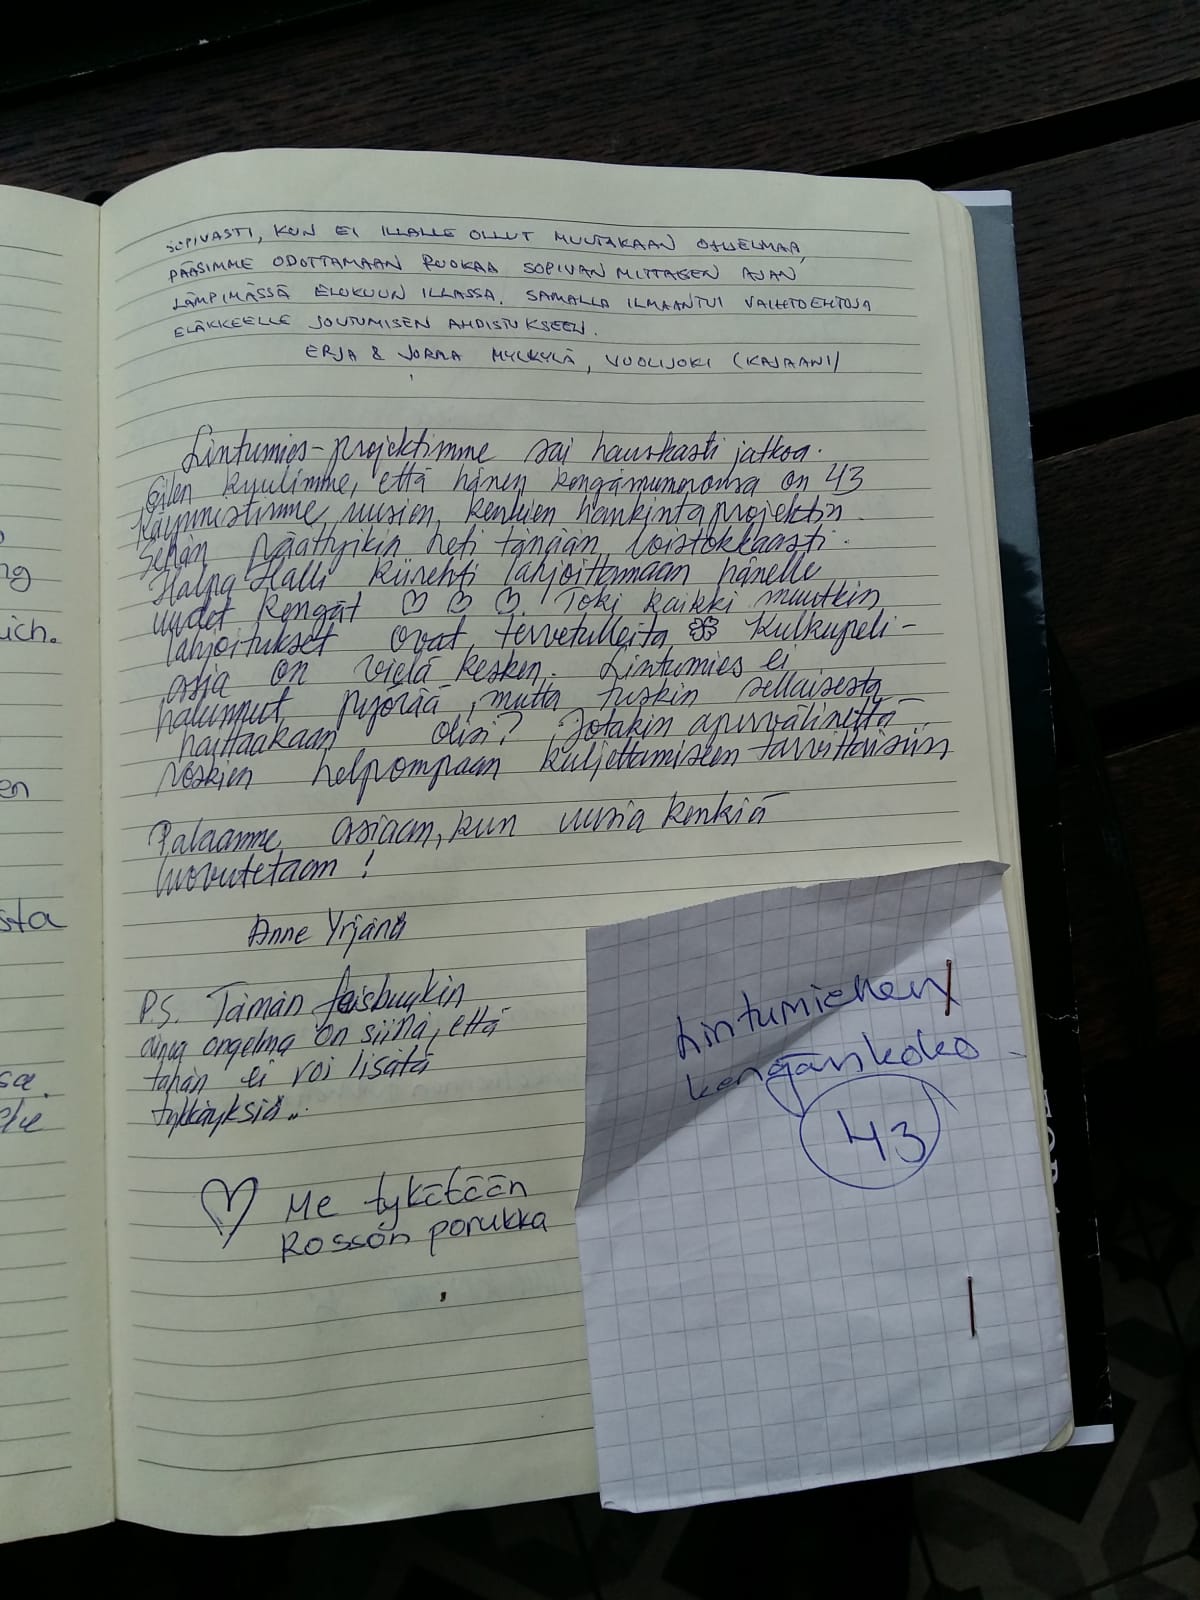 SOPIVASTI, KUN EI ILLALLE OLLUT MUUTAKAAN OHJELMAA,
PÄÄSIMME ODOTTAMAAN RUOKAA SOPIVAN MITTAISEN AJAN
LÄMPIMÄSSÄ ELOKUUN ILLASSA. SAMALLA ILMAANTUI VAIHTOEHTOJA
ELÄKKEELLE JOUTUMISEN AHDISTUKSEEN.
ERJA & JORMA MYLKYLÄ, VUOLIJOKI (KAJAANI)
Lintumies-projektimme sai hauskasti jatkoa.
Eilen kuulimme, että hänen kengännumeronsa on 43
Käynnistimme uusien kenkien hankintaprojektin.
Sehän päättyikin heti tänään loistokkaasti.
Halpa Halli kiirehti lahjoittamaan hänelle
uudet kengät ♡ ♡ ♡. Toki kaikki muutkin
lahjoitukset ovat tervetulleita Kulkupeli-
asia on vielä kesken. Lintumies ei
halunnut pyörää, mutta tuskin sellaisesta
haittaakaan olisi? Jotakin apuvälinettä
roskien helpompaan kuljettamiseen tarvittaisiin
Palaamme asiaan, kun uusia kenkiä
luovutetaan!
Anne Yrjänä
P.S. Tämän feisbuukin
ainoa ongelma on siinä, että
tähän ei voi lisätä
tykkäyksiä..
♡ Me tykätään
Rosson porukka
Lintumiehen
kengänkoko
43
ng
uich.
en
sta
sa.